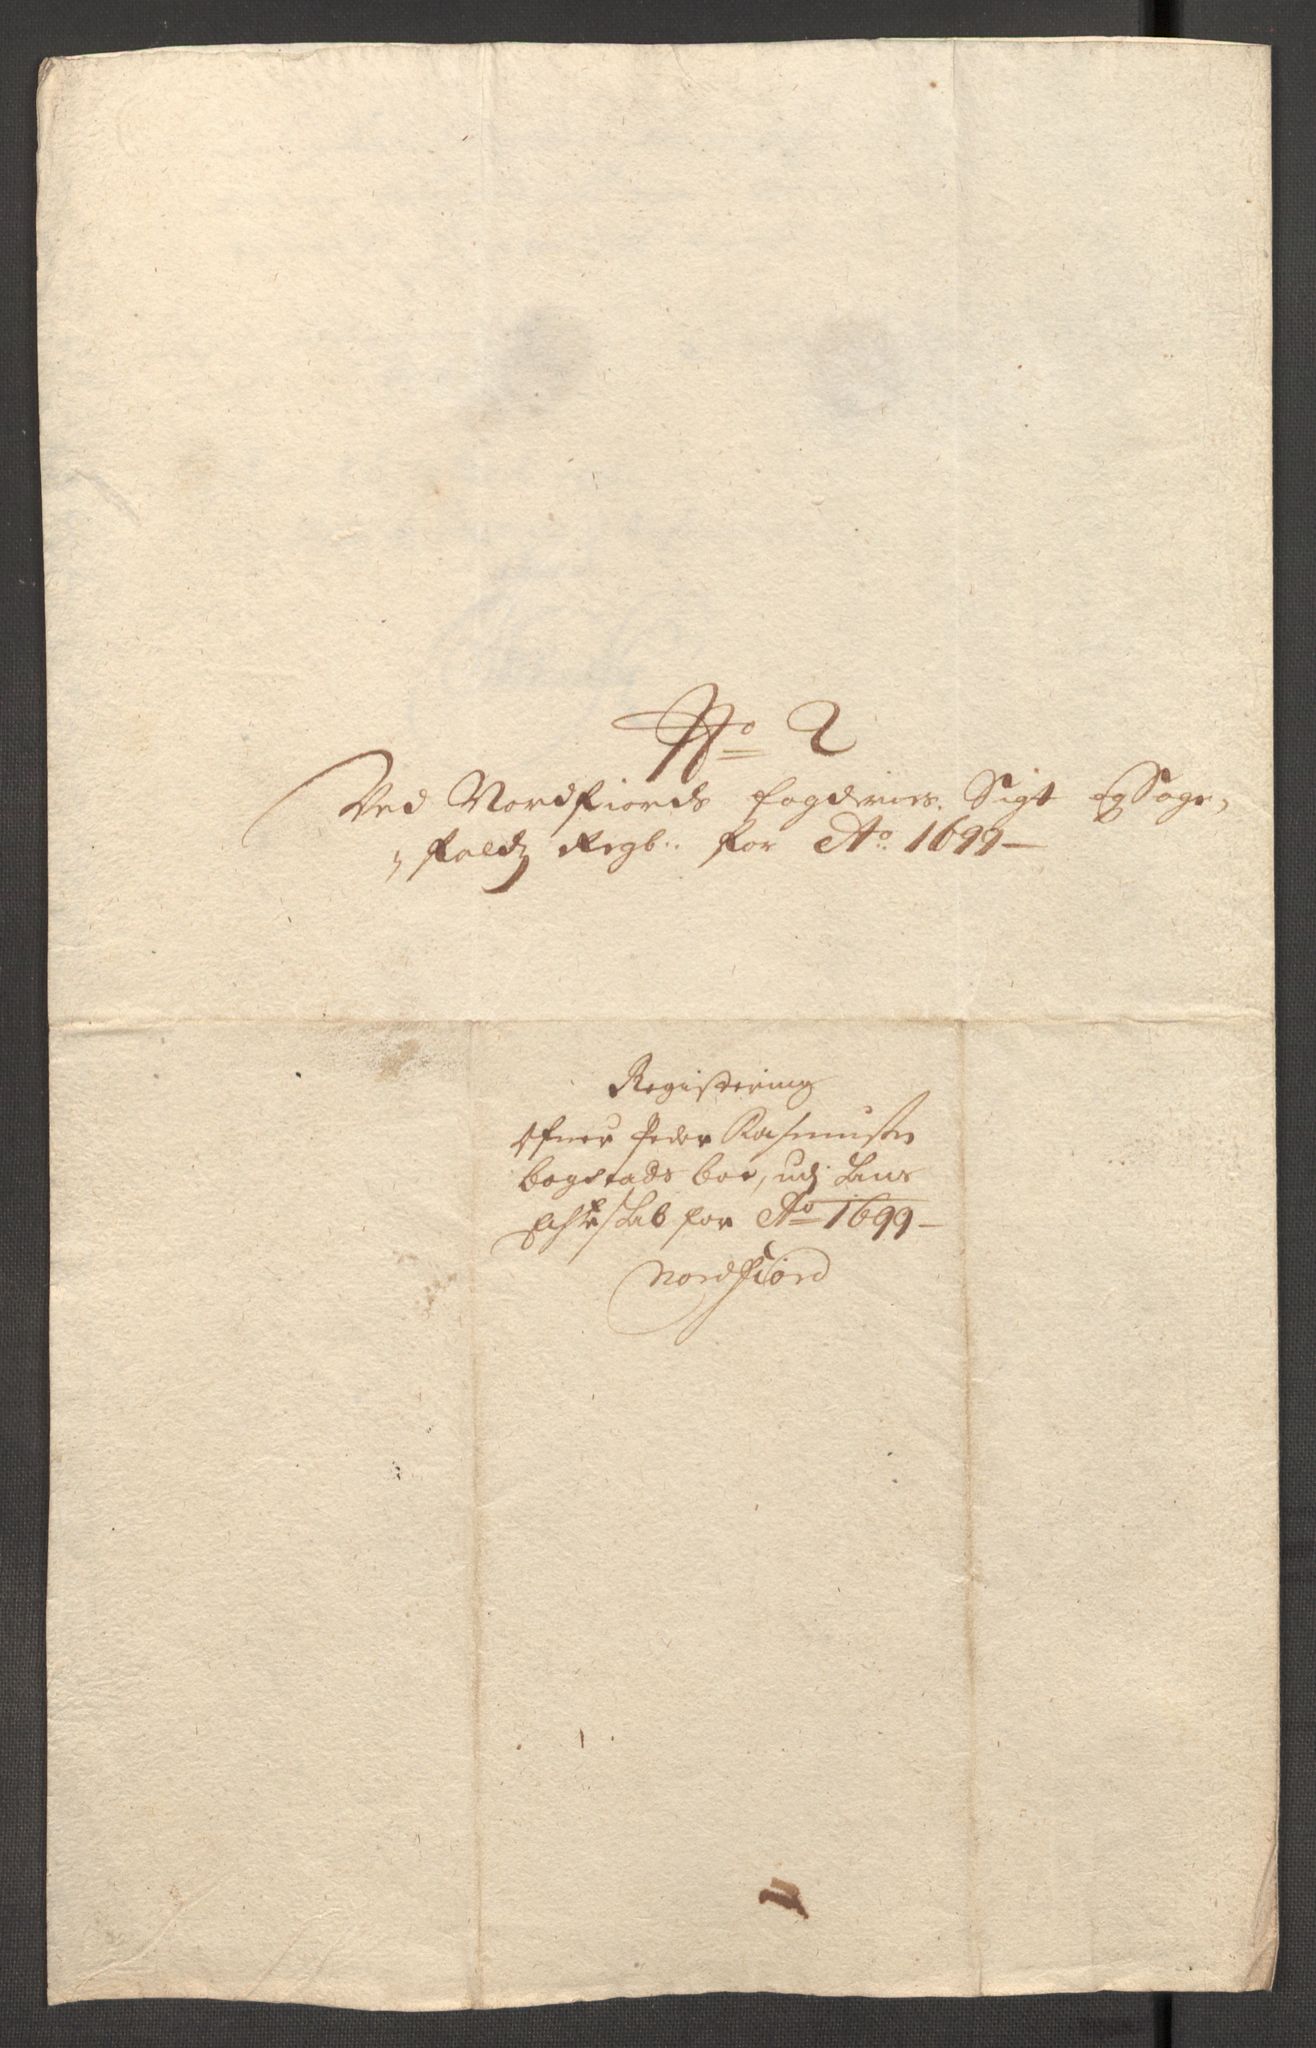 No 2
Ved Nordfiords fogderies Sigt og Sage,
,falds Regb: for Ao 1699
Registering
Ofver Peder Rasmusen
bogstads boe, udj
for Ao 1699
Nordfiord